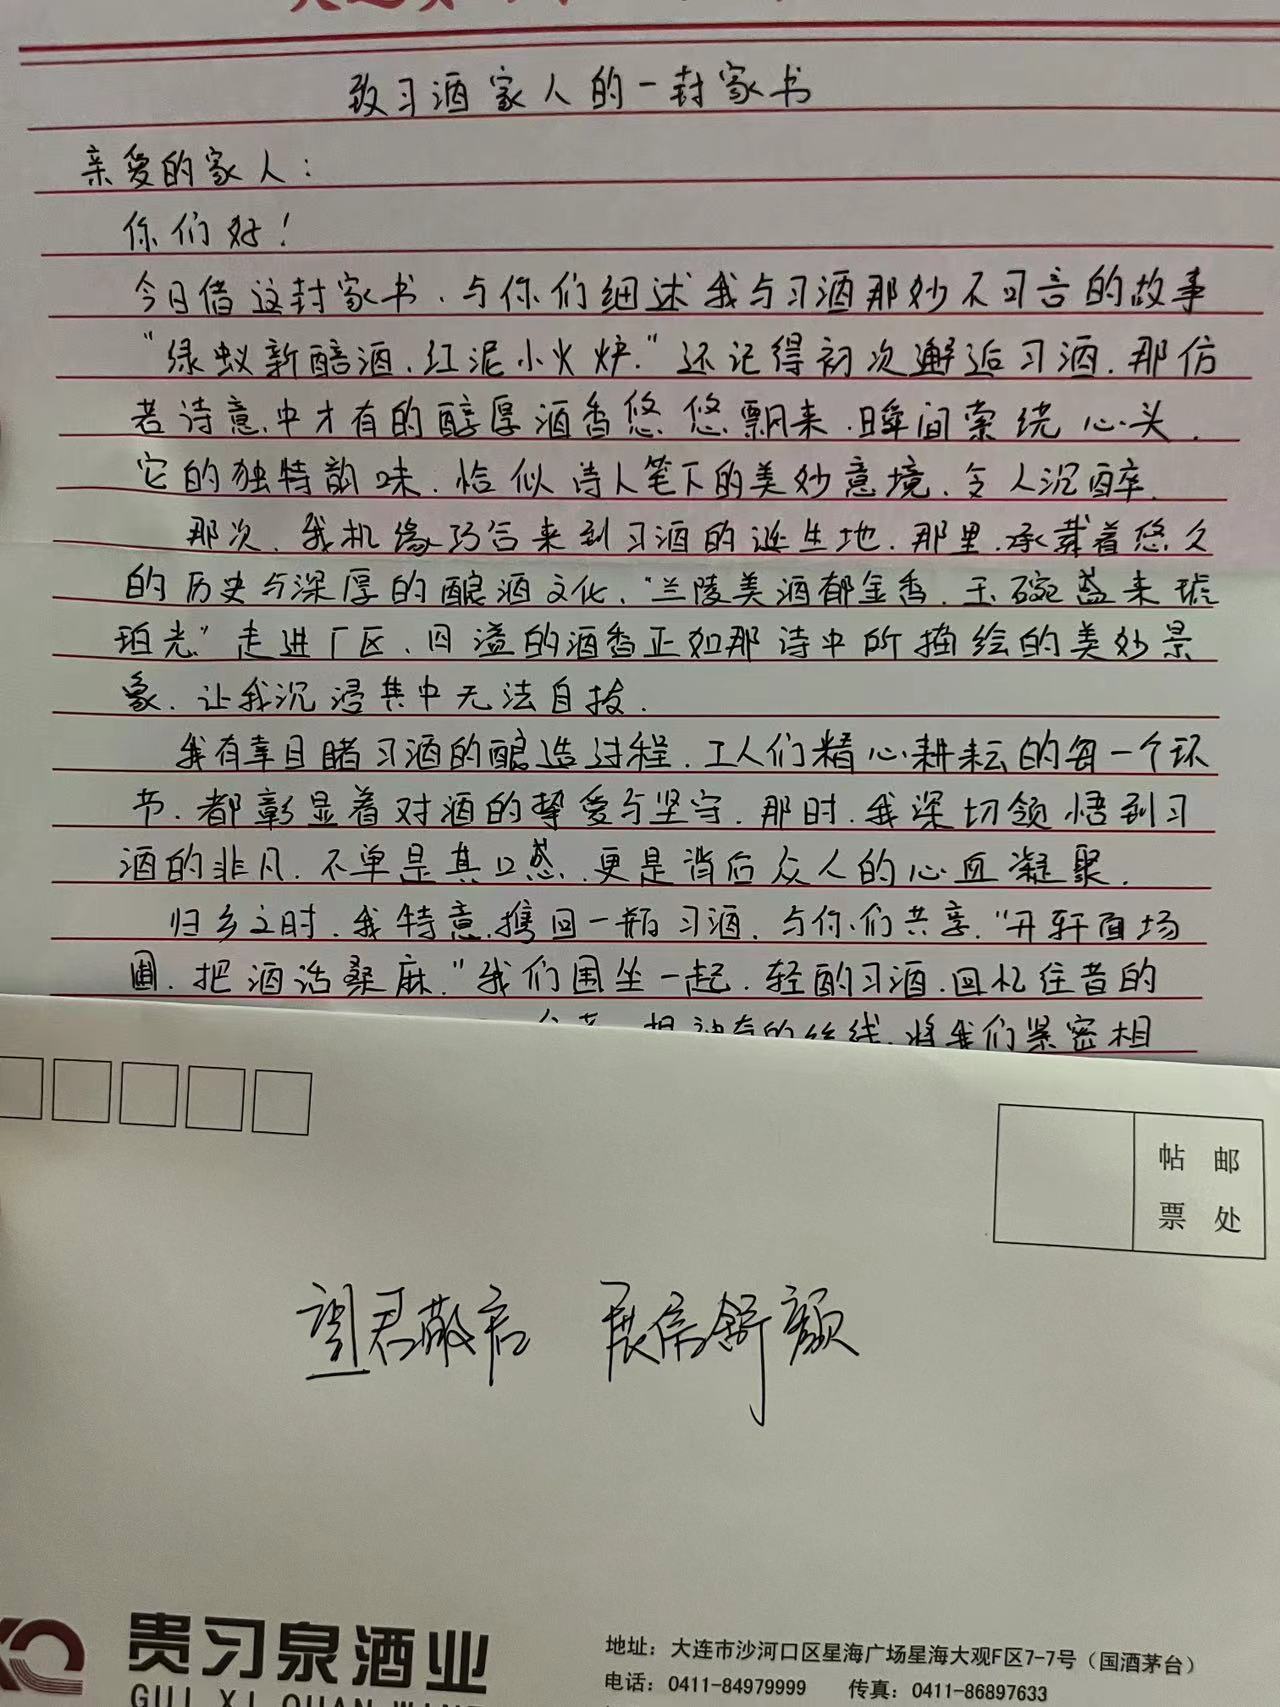 致习酒家人的一封家书
亲爱的家人：
你们好！
今日借这封家书，与你们细述我与习酒那妙不可言的故事
"绿蚁新醅酒，红泥小火炉."还记得初次邂逅习酒，那仿
若诗意中才有的醇厚酒香悠悠飘来，瞬间萦绕心头，
它的独特韵味，恰似诗人笔下的美妙意境，令人沉醉.
那次，我机缘巧合来到习酒的诞生地，那里，承载着悠久
的历史与深厚的酿酒文化，"兰陵美酒郁金香，玉碗盛来琥
珀光"走进厂区，四溢的酒香正如那诗中所描绘的美妙景
象，让我沉浸其中无法自拔.
我有幸目睹习酒的酿造过程，工人们精心耕耘的每一个环
节，都彰显着对酒的挚爱与坚守，那时，我深切领悟到习
酒的非凡，不单是其口感，更是背后众人的心血凝聚.
归乡之时，我特意携回一瓶习酒，与你们共享，"开轩面场
圃，把酒话桑麻，"我们围坐一起，轻酌习酒，回忆往昔的
的丝线，将我们紧密相
帖 邮
票 处
望君敬启 展信舒颜
贵习泉酒业
GUI XI QUAN WINE
地址：大连市沙河口区星海广场星海大观F区7-7号（国酒茅台）
电话：0411-84979999 传真：0411-86897633